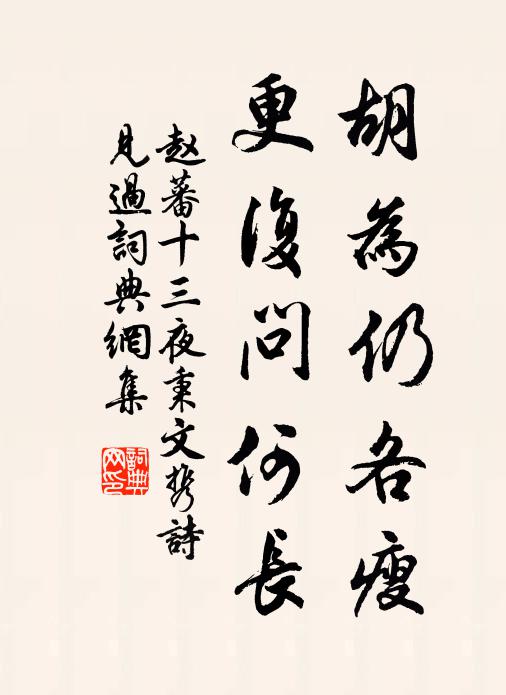 胡為仍各瘦
更復問何長
赵蕃十三夜秉文携詩
見過詞典網集
詞典
网印